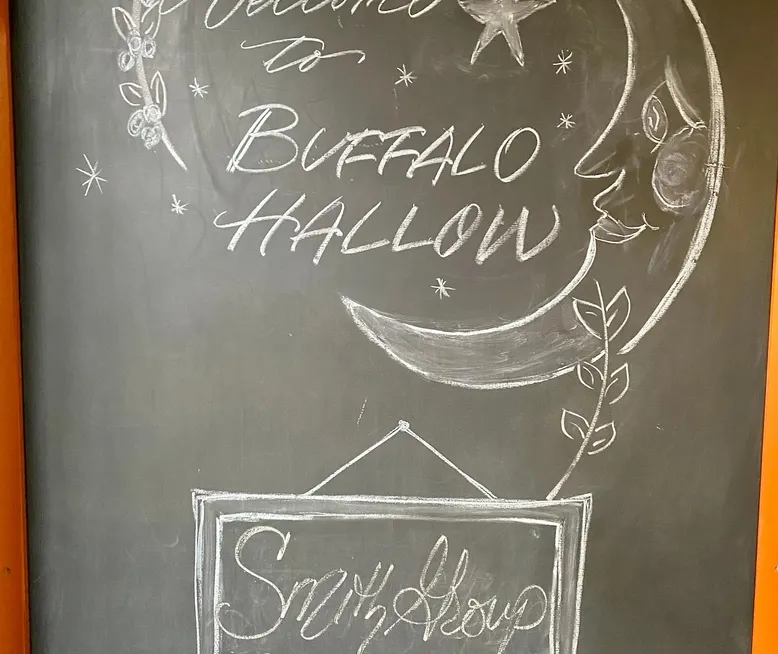 Welcome
to
BUFFALO
HALLOW
Smith Group